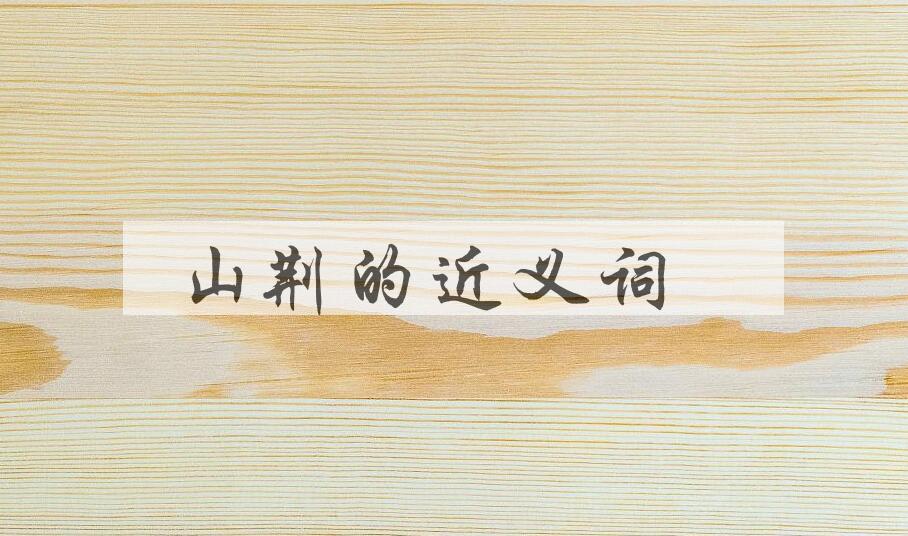 山荆的近义词